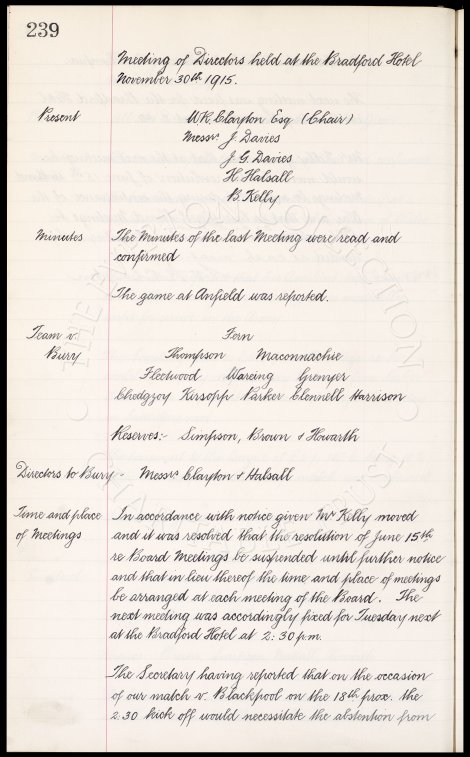 239
Meeting of Directors held at the Bradford Hotel
November 30th 1915.
Present
W.R. Clayton Esq (Chair)
Messrs J. Davies
J. G. Davies
H. Halsall
B. Kelly
Minutes
The Minutes of the last Meeting were read and
confirmed
The game at Anfield was reported.
Team v.
Bury
Fern
Thompson Maconnachie
Fleetwood Wareing Grenyer
Chedgzoy Kirsopp Parker Clennell Harrison
Reserves:- Simpson, Brown & Howarth
Directors to Bury - Messrs Clayton & Halsall
Time and place
of Meetings
In accordance with notice given Mr Kelly moved
and it was resolved that the resolution of June 15th
re Board Meetings be suspended until further notice
and that in lieu thereof the time and place of meetings
be arranged at each meeting of the Board. The
next meeting was accordingly fixed for Tuesday next
at the Bradford Hotel at 2:30 p.m.
The Secretary having reported that on the occasion
of our match v. Blackpool on the 18th prox. the
2.30 kick off would necessitate the abstention from